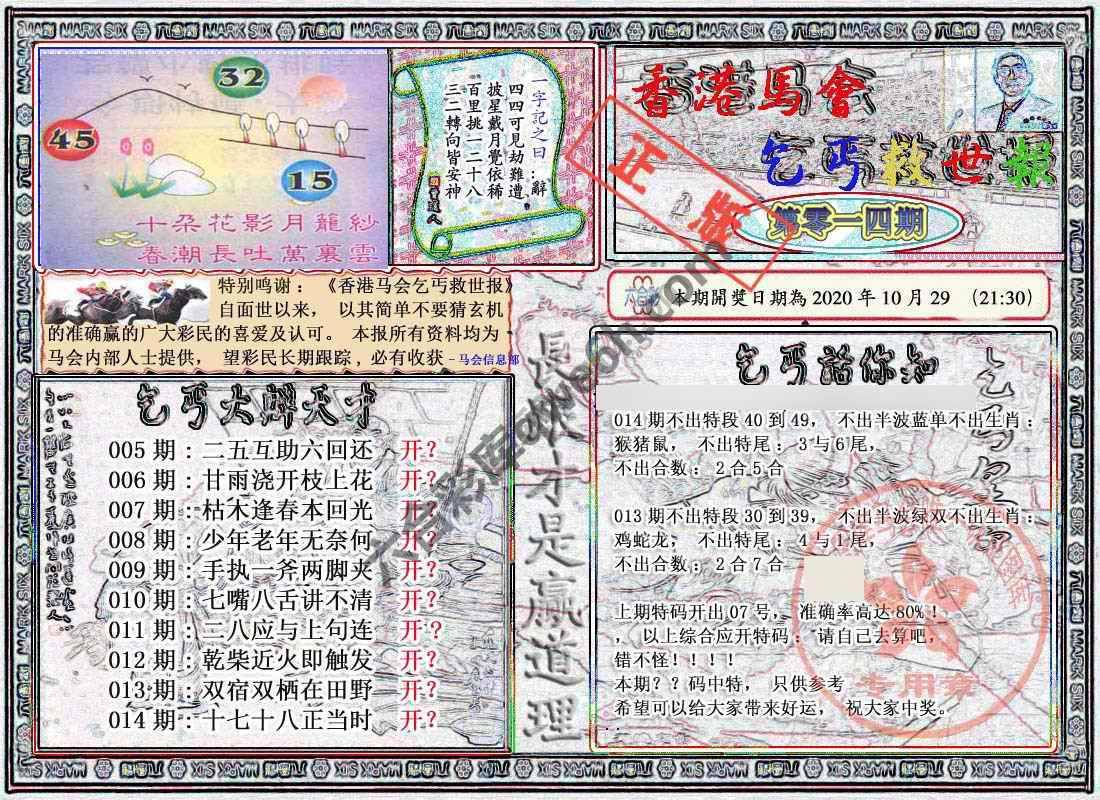 MARK SIX
32
45
15
十朵花影月籠紗
春潮長吐萬裏雲
一字記之曰：辭
四四可见劫難遭
披星戴月覺依稀
百里挑一二十八
三二轉向皆安神
曾道人
香港馬會
乞丐救世報
第零一四期
正版
特别鸣谢：《香港马会乞丐救世报》
自面世以来， 以其简单不要猜玄机
的准确赢的广大彩民的喜爱及认可。 本报所有资料均为
马会内部人士提供， 望彩民长期跟踪，必有收获－马会信息部
本期開獎日期為 2020 年 10 月 29 （21:30）
乞丐大解天才
005 期：二五互助六回还 开？
006 期：甘雨浇开枝上花 开？
007 期：枯木逢春本回光 开？
008 期：少年老年无奈何 开？
009 期：手执一斧两脚夹 开？
010 期：七嘴八舌讲不清 开？
011 期：二八应与上句连 开？
012 期：乾柴近火即触发 开？
013 期：双宿双栖在田野 开？
014 期：十七十八正当时 开？
長久才是赢道理
乞丐話你知
014 期不出特段 40 到 49， 不出半波蓝单不出生肖：
猴猪鼠， 不出特尾：3 与 6 尾，
不出合数：2 合 5 合
013 期不出特段 30 到 39， 不出半波绿双不出生肖：
鸡蛇龙， 不出特尾：4 与 1 尾，
不出合数：2 合 7 合
上期特码开出 07 号， 准确率高达 80%！
，以上综合应开特码：请自己去算吧，
错不怪！！！！
本期？？码中特， 只供参考
希望可以给大家带来好运， 祝大家中奖。
专用章